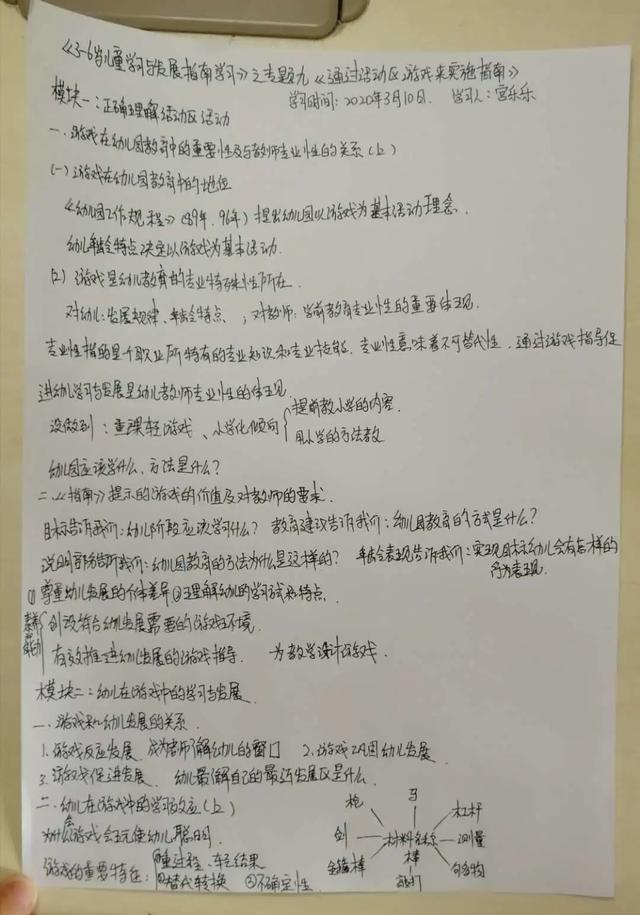 《3-6岁儿童学习与发展指南学习》之专题九《通过活动区游戏来实施指南》
模块一:正确理解活动区活动 学习时间:2020年3月10日. 学习人:宫乐乐
一、游戏在幼儿园教育中的重要性及与教师专业性的关系(上)
(一)游戏在幼儿园教育中的地位
《幼儿园工作规程》(89年.96年)提出幼儿园以游戏为基本活动理念.
幼儿年龄特点决定以游戏为基本活动.
(二)游戏是幼儿教育的专业特殊性所在.
对幼儿:发展规律、年龄特点、,对教师:学前教育专业性的重要体现.
专业性指的是个职业所特有的专业知识和专业技能、专业性意味着不可替代性.通过游戏指导促
进幼儿学习与发展是幼儿教师专业性的体现.
没做到:重课轻游戏、小学化倾向 提前教小学的内容.
用小学的方法教
幼儿园应该学什么、方法是什么?
二、《指南》提示的游戏的价值及对教师的要求.
目标告诉我们:幼儿阶段应该学习什么? 教育建议告诉我们:幼儿园教育的方式是什么?
说明部分告诉我们:幼儿园教育的方法为什么是这样的? 年龄表现告诉我们:实现目标幼儿会有怎样的
行为表现.
①尊重幼儿发展的个体差异②理解幼儿的学习方式和特点.
创设符合幼儿发展需要的游戏环境.
有效推进幼儿发展的游戏指导. 为教学设计游戏.
模块二:幼儿在游戏中的学习与发展.
一、游戏和幼儿发展的关系.
1.游戏反应发展、成为老师了解幼儿的窗口 2.游戏巩固幼儿发展.
3.游戏促进发展、幼儿最了解自己的最近发展区是什么.
二、幼儿在游戏中的学习效应(上)
为什么游戏会玩使幼儿聪明.
游戏的重要特征: ①重过程、轻结果
②替代转换 ③不确定性.
枪 马 杠杆
剑 材料名称 测量
金箍棒 棒 勾合物
敲打